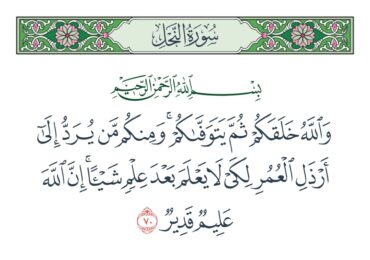 سُورَةُ النَّحْلِ
بِسْمِ اللَّهِ الرَّحْمَٰنِ الرَّحِيمِ
وَاللَّهُ خَلَقَكُمْ ثُمَّ يَتَوَفَّاكُمْ ۚ وَمِنكُم مَّن يُرَدُّ إِلَىٰ
أَرْذَلِ الْعُمُرِ لِكَيْ لَا يَعْلَمَ بَعْدَ عِلْمٍ شَيْئًا ۚ إِنَّ اللَّهَ
عَلِيمٌ قَدِيرٌ ٧٠